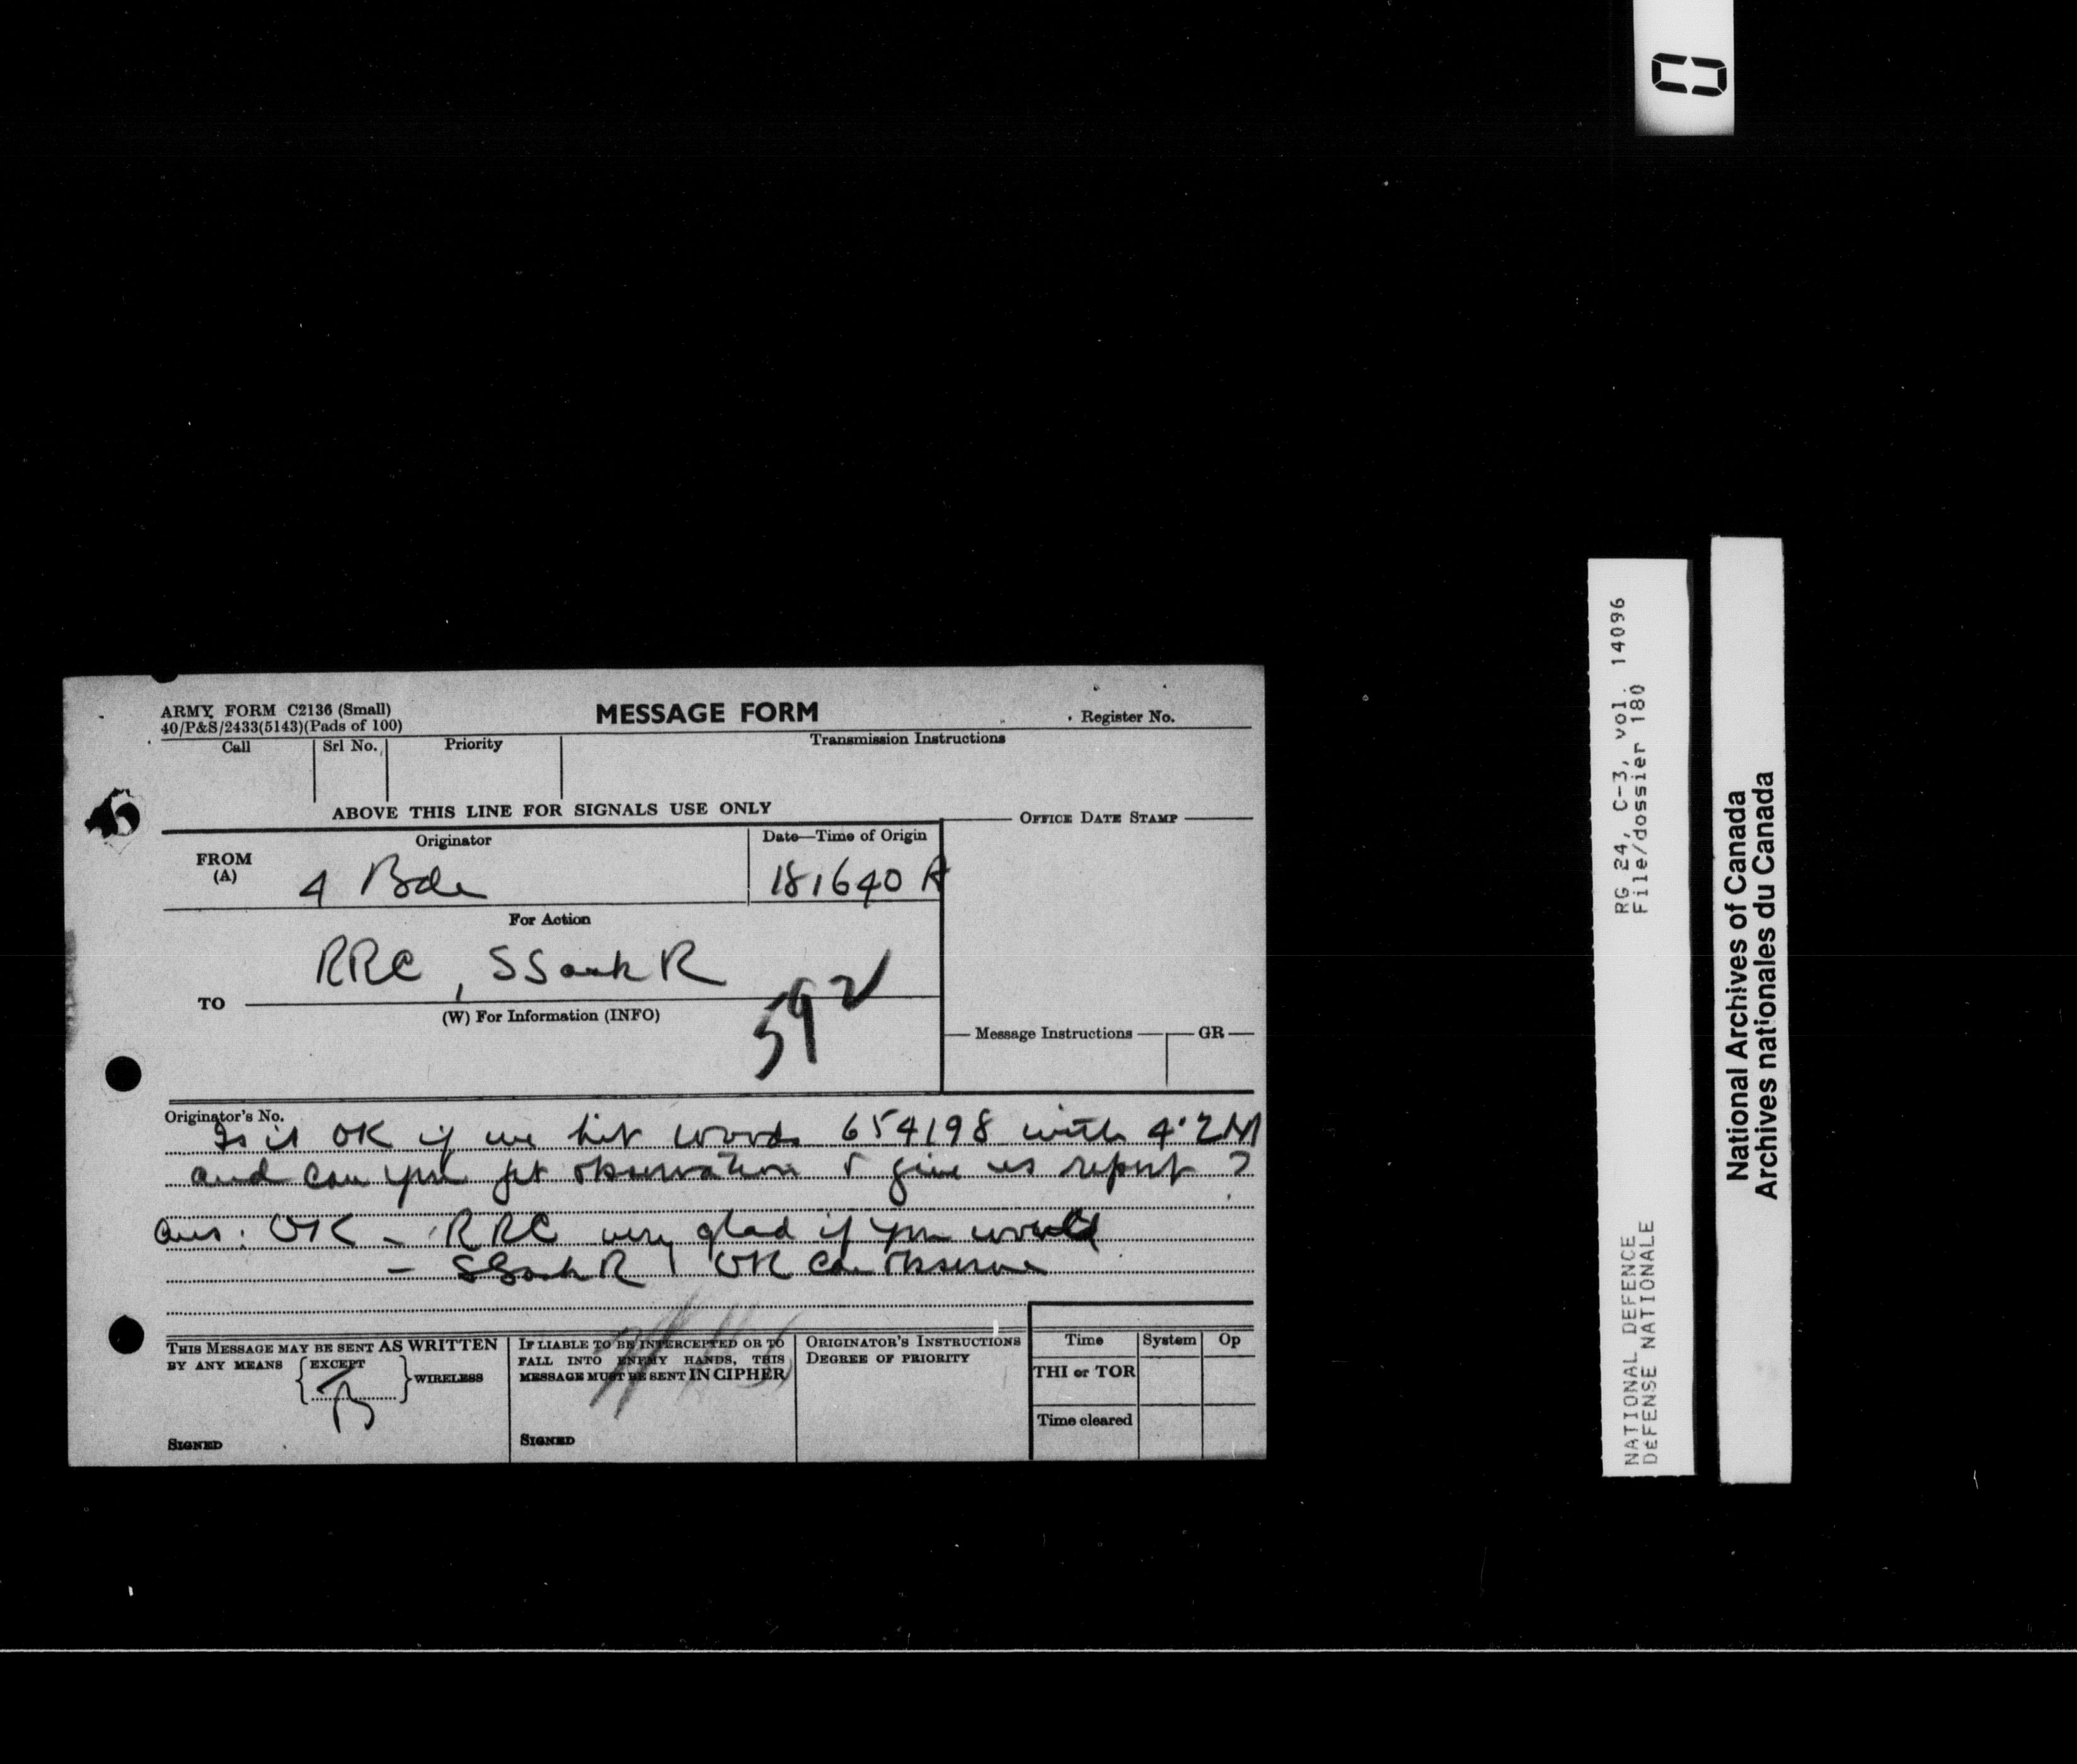 ARMY FORM C2136 (Small)
40/P&S/2433(5143)(Pads of 100)
MESSAGE FORM
Register No.
Call
Srl No.
Priority
Transmission Instructions
ABOVE THIS LINE FOR SIGNALS USE ONLY
OFFICE DATE STAMP
FROM
(A)
Originator
4 Bde
Date—Time of Origin
181640 A
For Action
RRC, SSaskR
TO
(W) For Information (INFO)
592
Message Instructions
GR
Originator's No.
Is it OK if we hit woods 654198 with 4.2M
and can you get observation & give us report ?
Ans: OK - RRC very glad if you would
- SSaskR OK can observe
THIS MESSAGE MAY BE SENT AS WRITTEN
BY ANY MEANS { EXCEPT } WIRELESS
SIGNED
IF LIABLE TO BE INTERCEPTED OR TO
FALL INTO ENEMY HANDS, THIS
MESSAGE MUST BE SENT IN CIPHER
SIGNED
ORIGINATOR'S INSTRUCTIONS
DEGREE OF PRIORITY
Time
System
Op
THI or TOR
Time cleared
RG 24, C-3, vol. 14096
File/dossier 180
NATIONAL DEFENCE
DÉFENSE NATIONALE
National Archives of Canada
Archives nationales du Canada